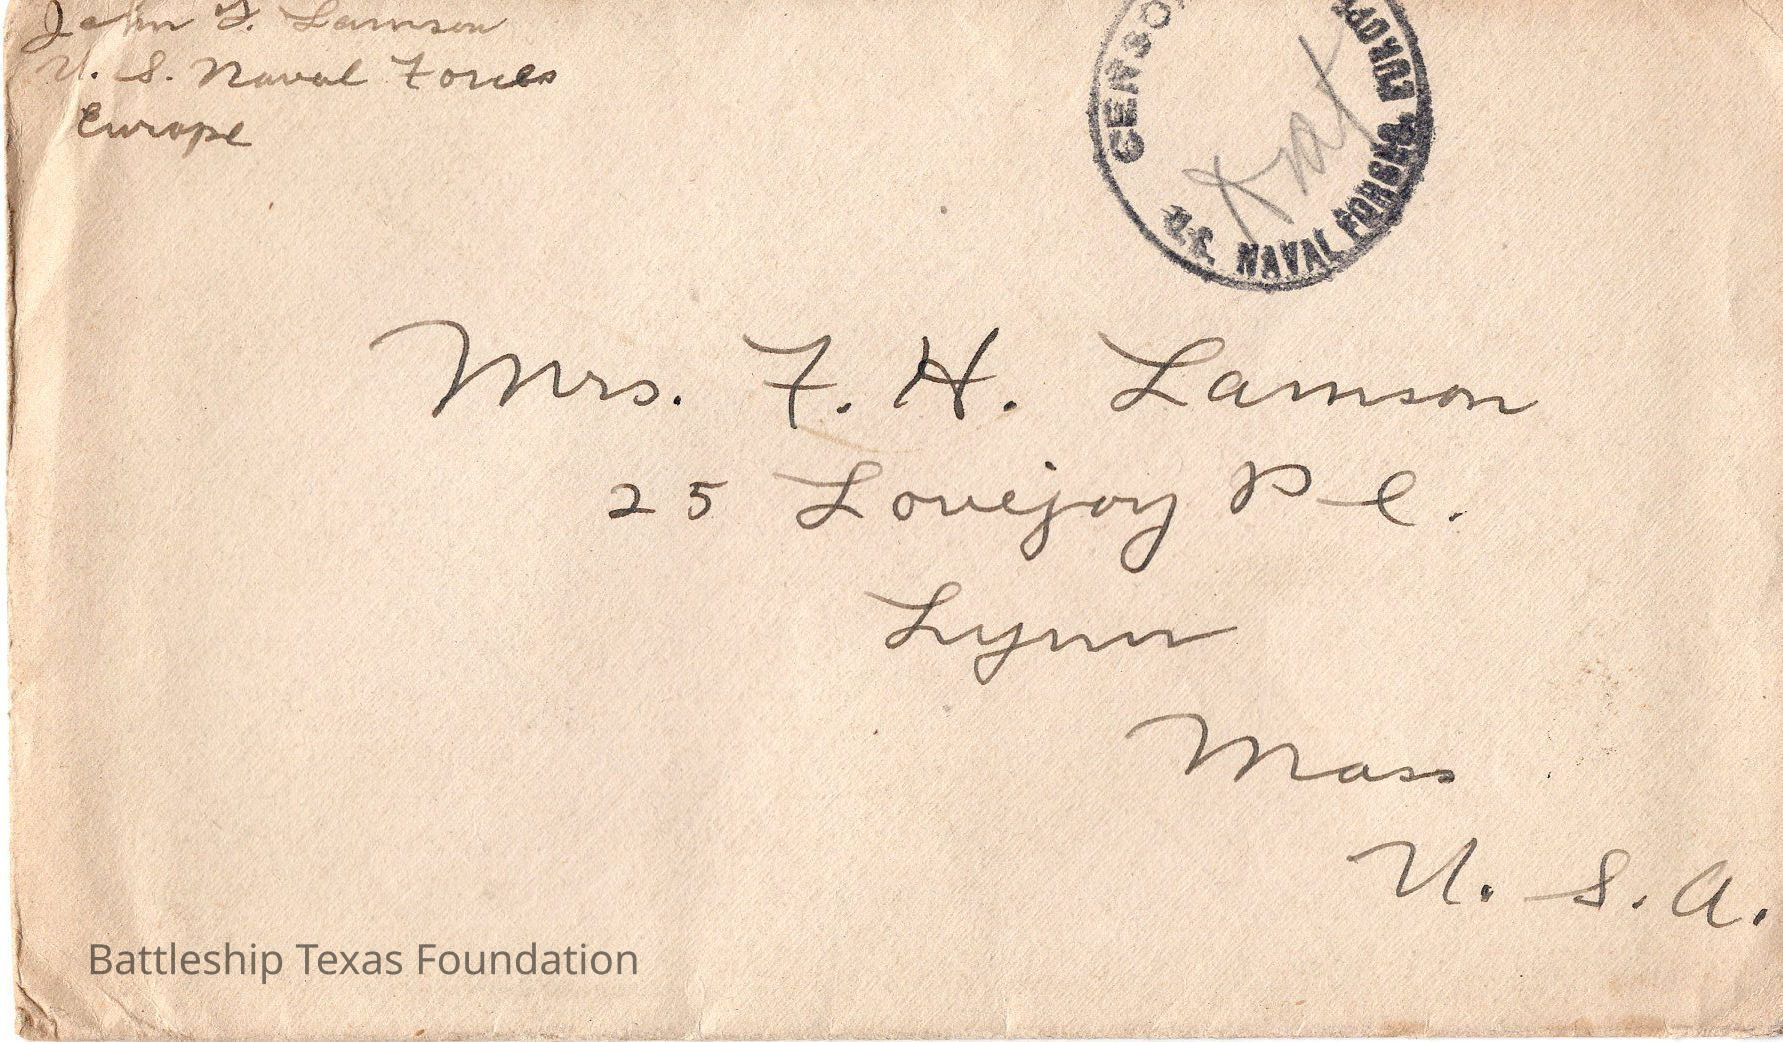 John F. Lamson
U. S. Naval Forces
Europe
CENSO
U.S. NAVAL FORCES, EUROPE
Mrs. F. H. Lamson
25 Lovejoy Pl.
Lynn
Mass
U. S. A.
Battleship Texas Foundation